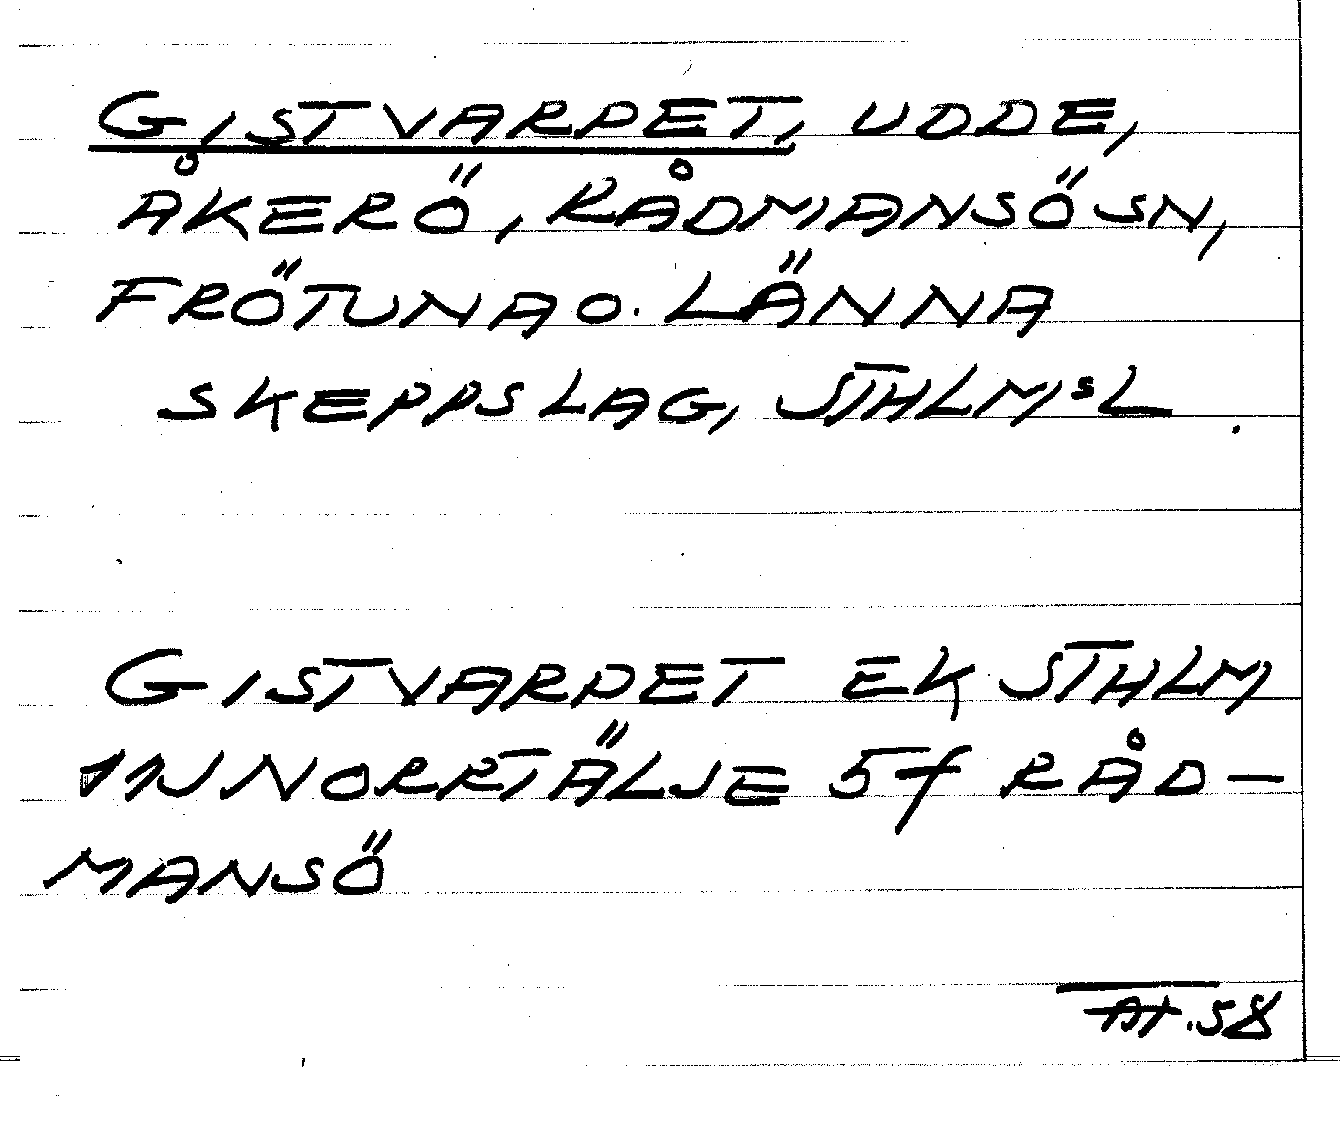 GISTVARPET, UDDE,
ÅKERÖ, RÅDMANSÖ SN,
FRÖTUNA O. LÄNNA
SKEPPSLAG, STHLMˢL.
GISTVARPET EK STHLM
11J NORRTÄLJE 5f RÅD-
MANSÖ
.58